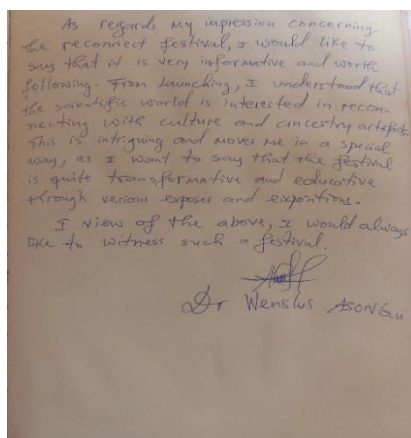 As regards my impression concerning
the reconnect festival, I would like to
say that it is very informative and worth
following. From launching, I understood that
the scientific world is interested in recon-
necting with culture and ancestry artefacts.
This is intriguing and moves me in a special
way, as I want to say that the festival
is quite transformative and educative
through various exposes and expositions.
I view of the above, I would always
like to witness such a festival.
Dr Wenslus ASONGu